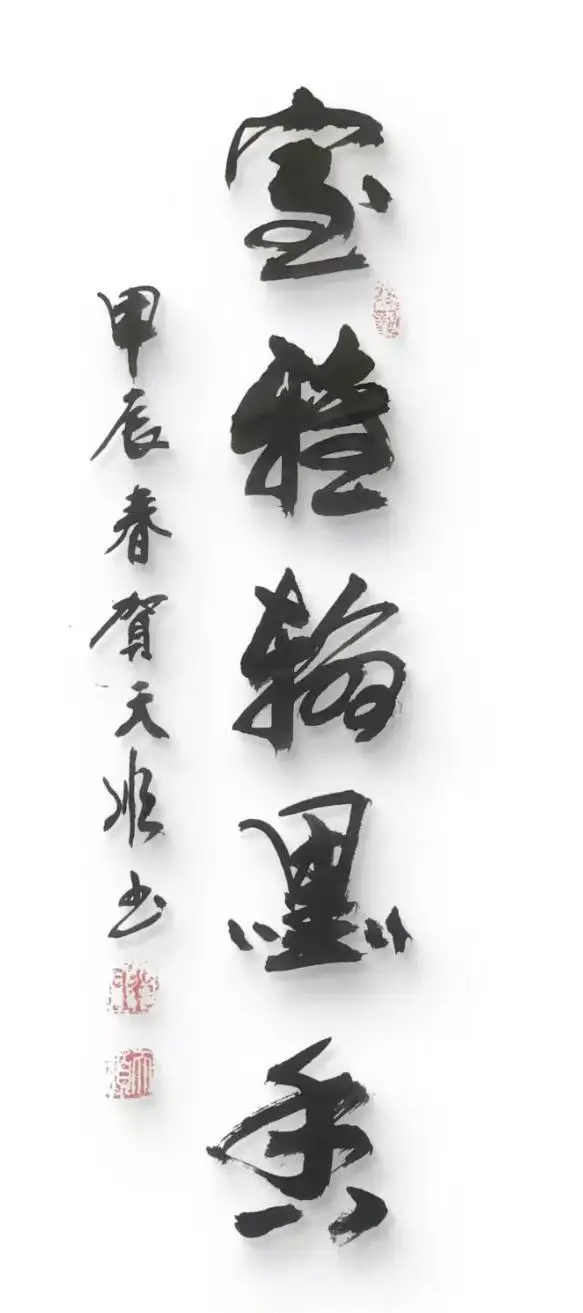 室雅翰墨香
甲辰春賀天順书